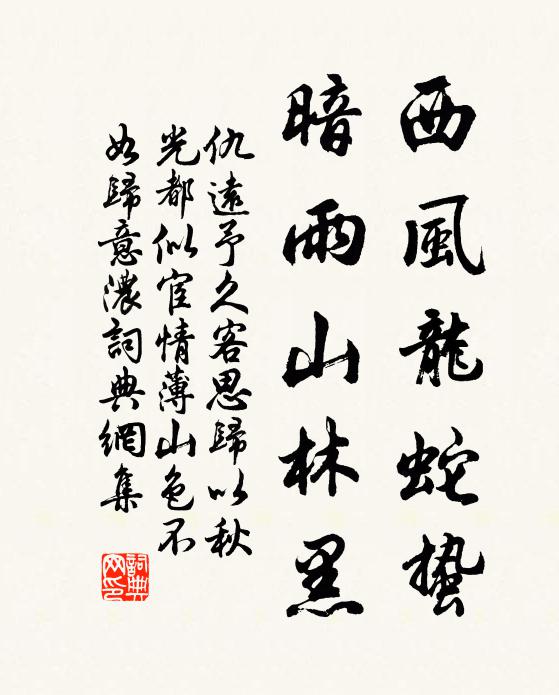 西風龍蛇蟄
暗雨山林黑
仇遠予久客思歸以秋
光都似宦情薄山色不
如歸意濃詞典網集
詞典
网印